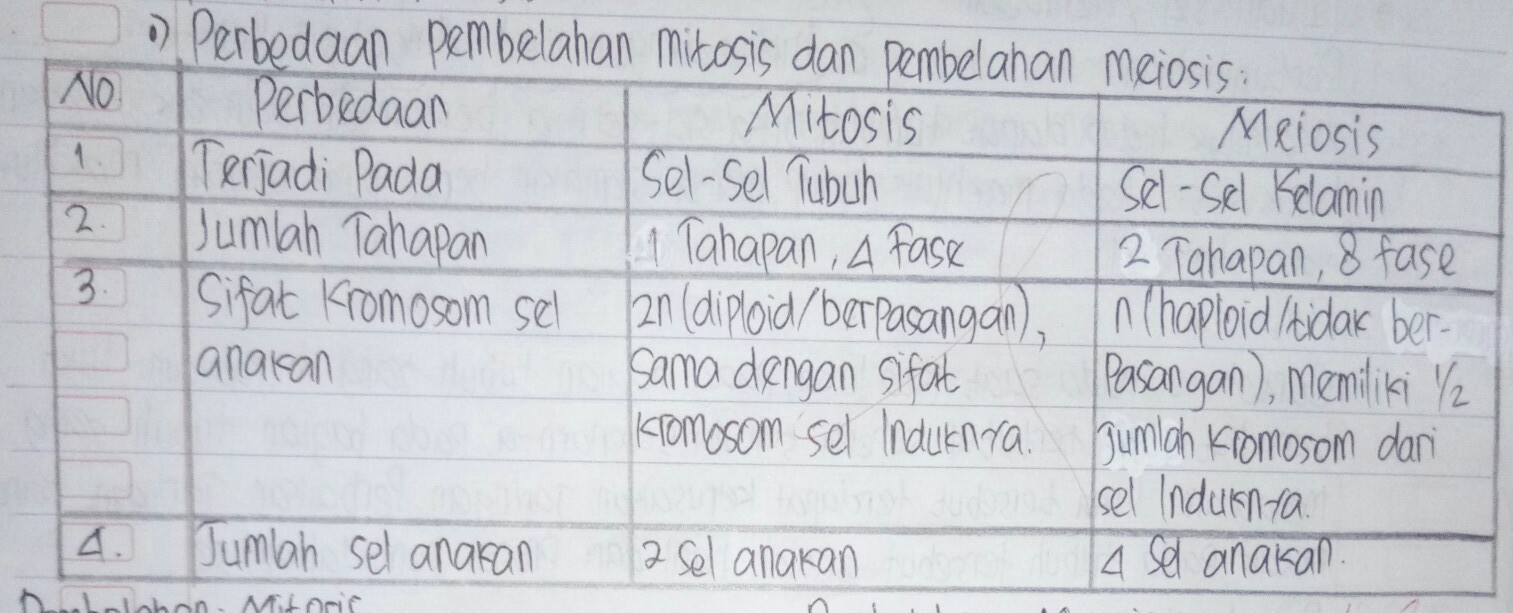 •) Perbedaan pembelahan mitosis dan pembelahan meiosis.
No Perbedaan Mitosis Meiosis
1. Terjadi Pada Sel-sel Tubuh Sel-sel Kelamin
2. Jumlah Tahapan 1 Tahapan, 4 Fase 2 Tahapan, 8 fase
3. Sifat Kromosom sel 2n (diploid/berpasangan), n (haploid/tidak ber-
anakan sama dengan sifat Pasangan), Memiliki 1/2
kromosom sel Induknya. jumlah kromosom dari
sel Induknya.
4. Jumlah sel anakan 2 Sel anakan 4 Sel anakan.
Pembelahan Mitosis